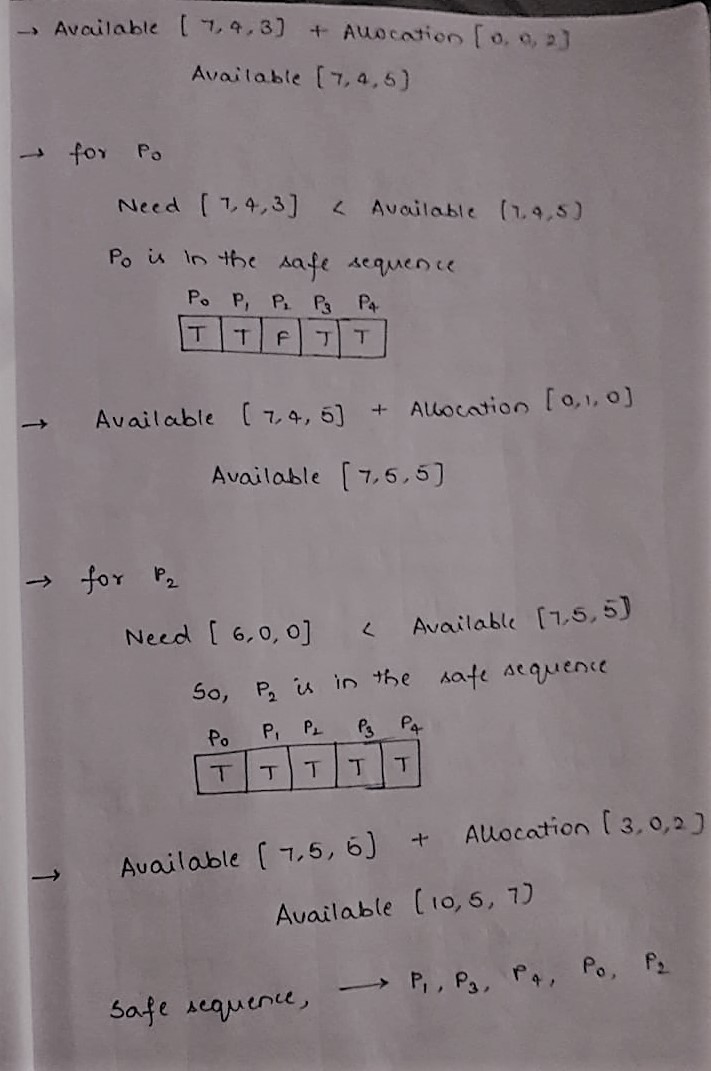 → Available [7,4,3] + Allocation [0,0,2]
Available [7,4,5]
→ for P₀
Need [7,4,3] < Available [7,4,5]
P₀ is in the safe sequence
P₀ P₁ P₂ P₃ P₄
T T F T T
→ Available [7,4,5] + Allocation [0,1,0]
Available [7,5,5]
→ for P₂
Need [6,0,0] < Available [7,5,5]
So, P₂ is in the safe sequence
P₀ P₁ P₂ P₃ P₄
T T T T T
→ Available [7,5,5] + Allocation [3,0,2]
Available [10,5,7]
Safe sequence, → P₁, P₃, P₄, P₀, P₂